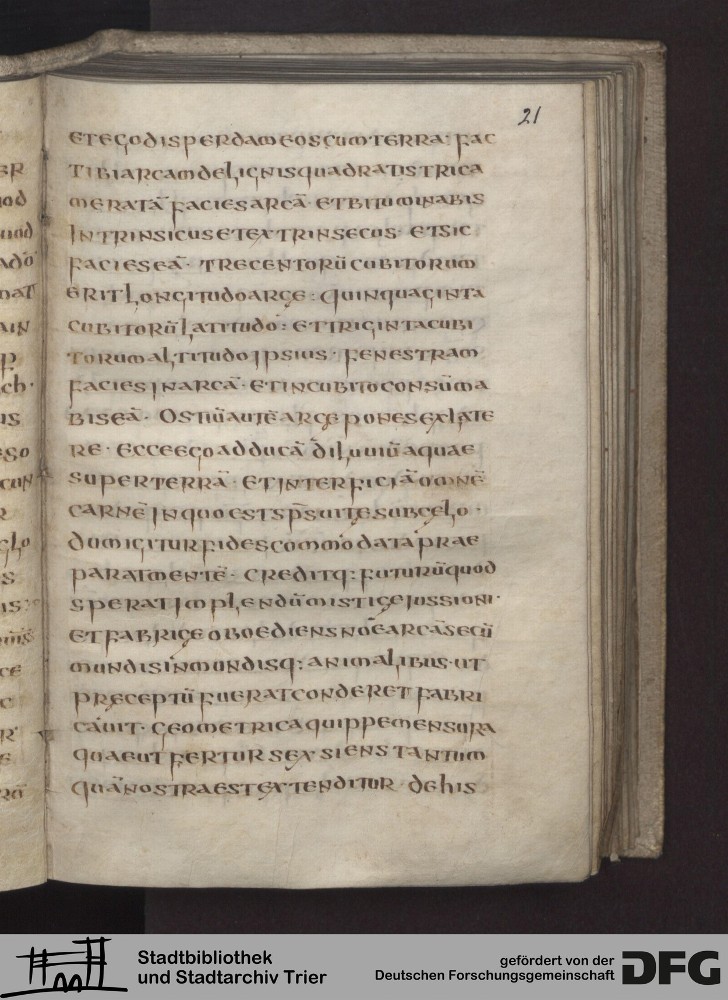 21
ETEGODISPERDAMEOSCUMTERRA: FAC
TIBIARCAMDELIGNISQUADRATISTRICA
MERATĀ FACIESARCĀ· ETBITUMINABIS
INTRINSICUSETEXTRINSECUS· ETSIC
FACIESEĀ· TRECENTORŪCUBITORUM
ERITLONGITUDOARCE: QUINQUAGINTA
CUBITORŪLATITUDO: ETTRIGINTACUBI
TORUMALTITUDOIPSIUS· FENESTRAM
FACIESINARCĀ· ETINCUBITOCONSŪMA
BISEĀ· OSTIŪAUTĒARCEPONESEXLATE
RE· ECCEEGOADDUCĀ DILUUIŪAQUAE
SUPERTERRĀ· ETINTERFICIĀOMNĒ
CARNĒINQUOESTSPS̄UITESUBCELO·
DUMIGITURFIDESCOMMODATAPRAE
PARATMENTĒ· CREDITQ: FUTURŪQUOD
SPERATIMPLENDŪMISTICEIUSSIONI·
ETFABRICEOBOEDIENSNOEARCĀSECŪ
MUNDISINMUNDISQ: ANIMALIBUS·UT
PRECEPTŪFUERATCONDERETFABRI
CAUIT· GEOMETRICAQUIPPEMENSURA
QUAEUTFERTURSEXSIENSTANTUM
QUĀNOSTRAESTEXTENDITUR· DEHIS
Stadtbibliothek
und Stadtarchiv Trier
gefördert von der
Deutschen Forschungsgemeinschaft
DFG